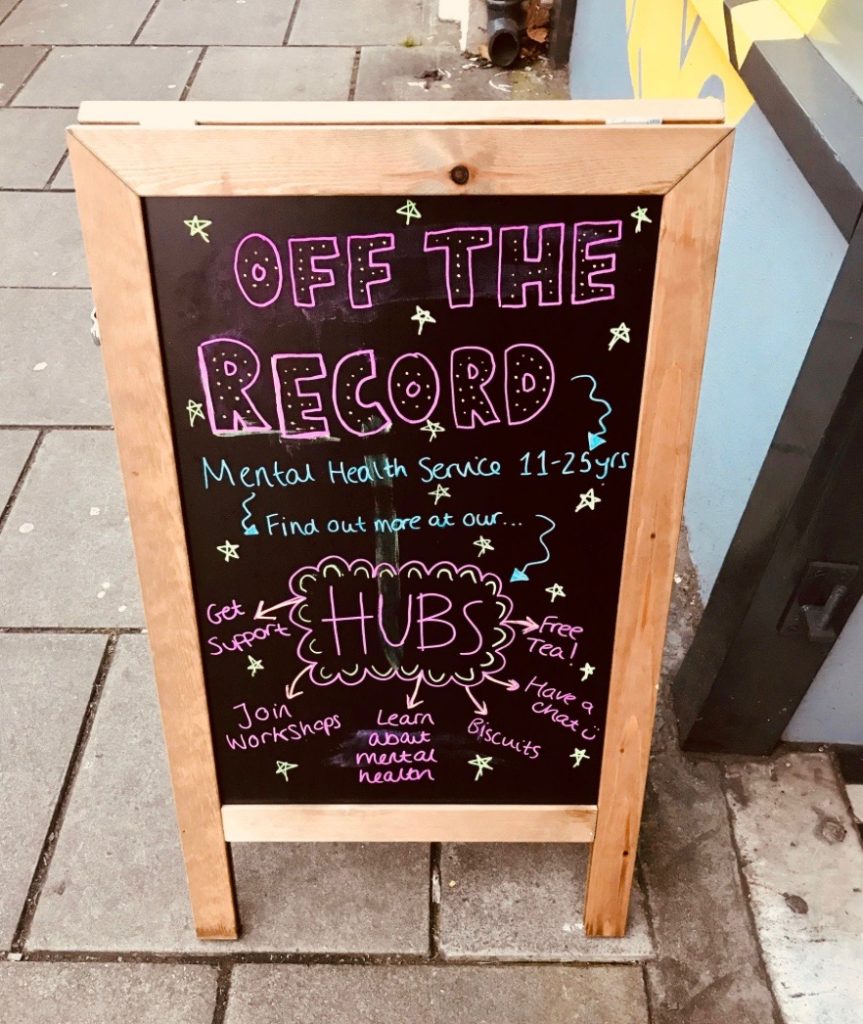 OFF THE
RECORD
Mental Health Service 11-25yrs
Find out more at our...
HUBS
Get
Support
Free
Tea!
Join
Workshops
Learn
about
mental
health
Biscuits
Have a
chat